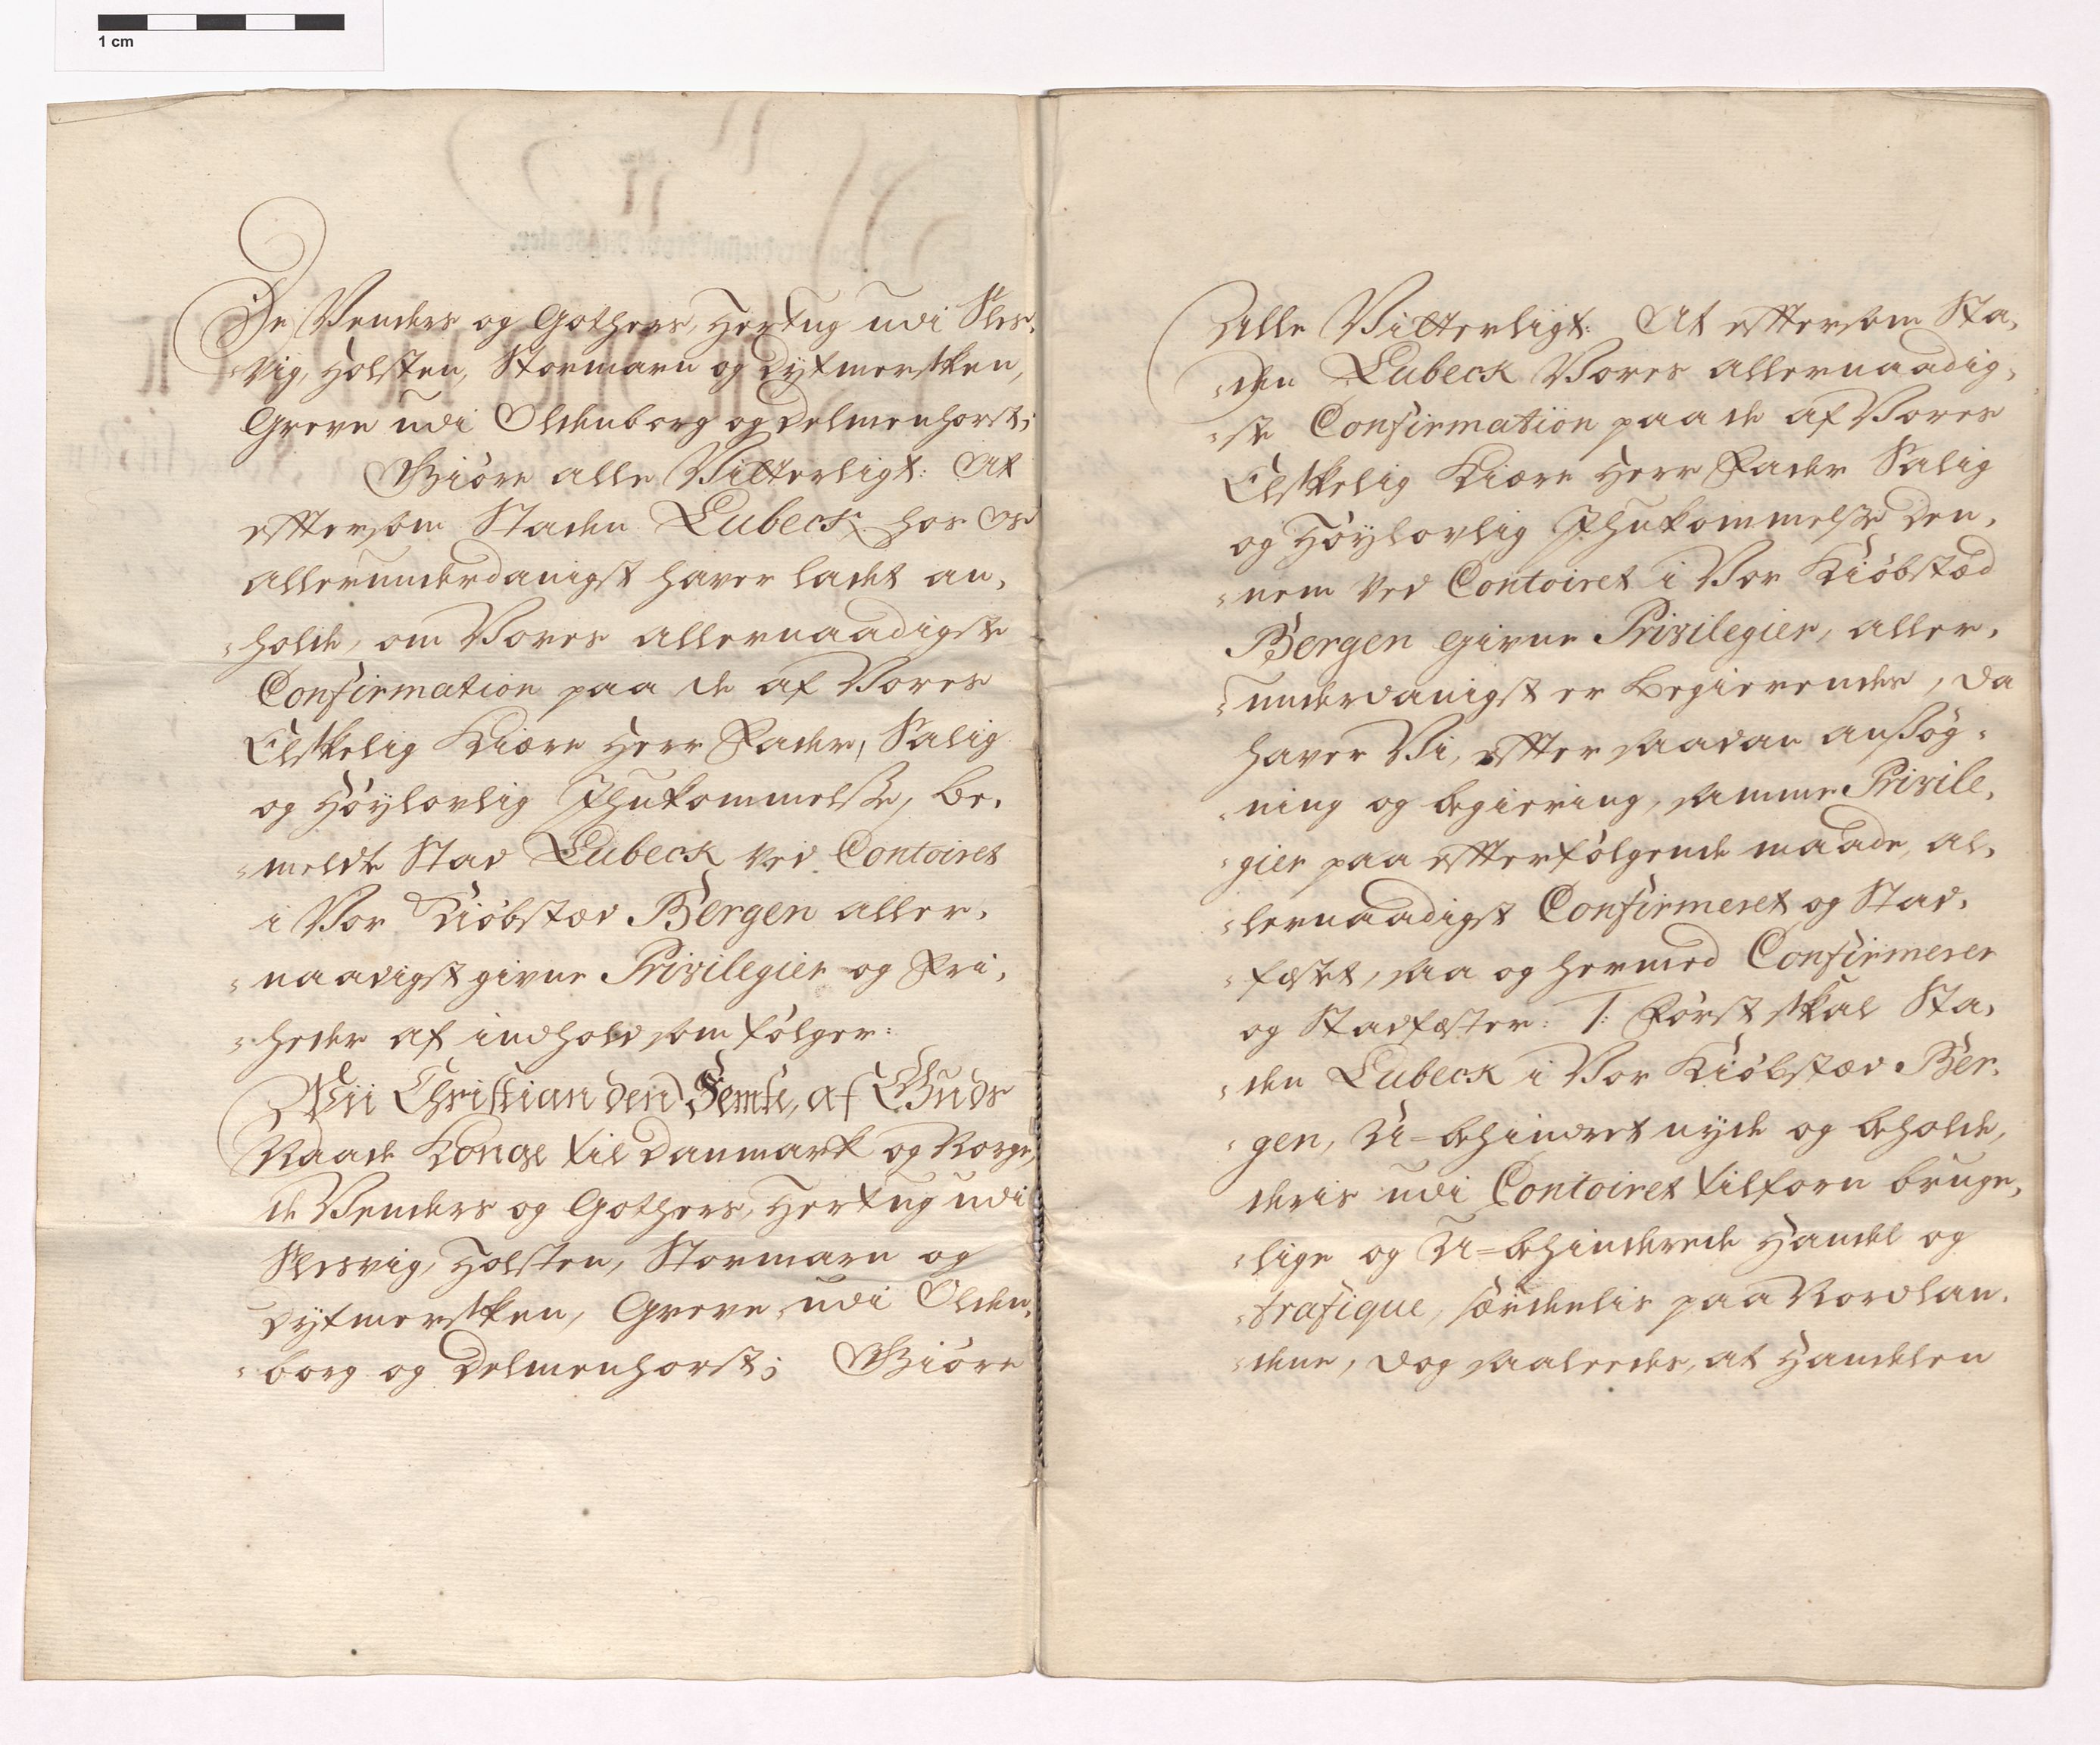 1 cm
De Venders og Gothers, Hertug udi Sles-
-vig, Holsten, Stormarn og Dytmersken,
Greve udi Oldenborg og Delmenhorst;
Giöre alle Vitterligt: At
eftersom Staden Lubeck hos Os
allerunderdanigst haver ladet an-
-holde, om Vores allernaadigste
Confirmation paa de af Vores
Elskelig Kiære Herr Fader, Salig
og Höylovlig Ihukommelse, be-
-meldte Stad Lubeck ved Contoiret
i Vor Kiöbstæd Bergen aller-
-naadigst givne Privilegier og Fri-
-heder af indhold som fölger:
Wii Christian den Femte, af Guds
Naade Konge til Danmark og Norge,
de Venders og Gothers, Hertug udi
Slesvig, Holsten, Stormarn og
Dytmersken, Greve udi Olden-
-borg og Delmenhorst; Giöre
Alle Vitterligt: At eftersom Sta-
-den Lubeck Vores allernaadig-
-ste Confirmation paa de af Vores
Elskelig Kiære Herr Fader Salig
og Höylovlig Ihukommelse den-
-nem ved Contoiret i Vor Kiöbstæd
Bergen givne Privilegier, aller-
-underdanigst er begierendes, da
haver Vi, efter saadan ansög-
-ning og begiering, samme Privile-
-gier paa efterfölgende maade, al-
-lernaadigst Confirmeret og Stad-
-fæstet, saa og hermed Confirmerer
og Stadfæster: 1: Först skal Sta-
-den Lubeck i Vor Kiöbstæd Ber-
-gen, U=behindret nyde og beholde,
deris udi Contoiret tilforn bruge-
-lige og U=behinderede Handel og
-trafique, særdelis paa Nordlan-
-dene, dog saaledes, at Handelen